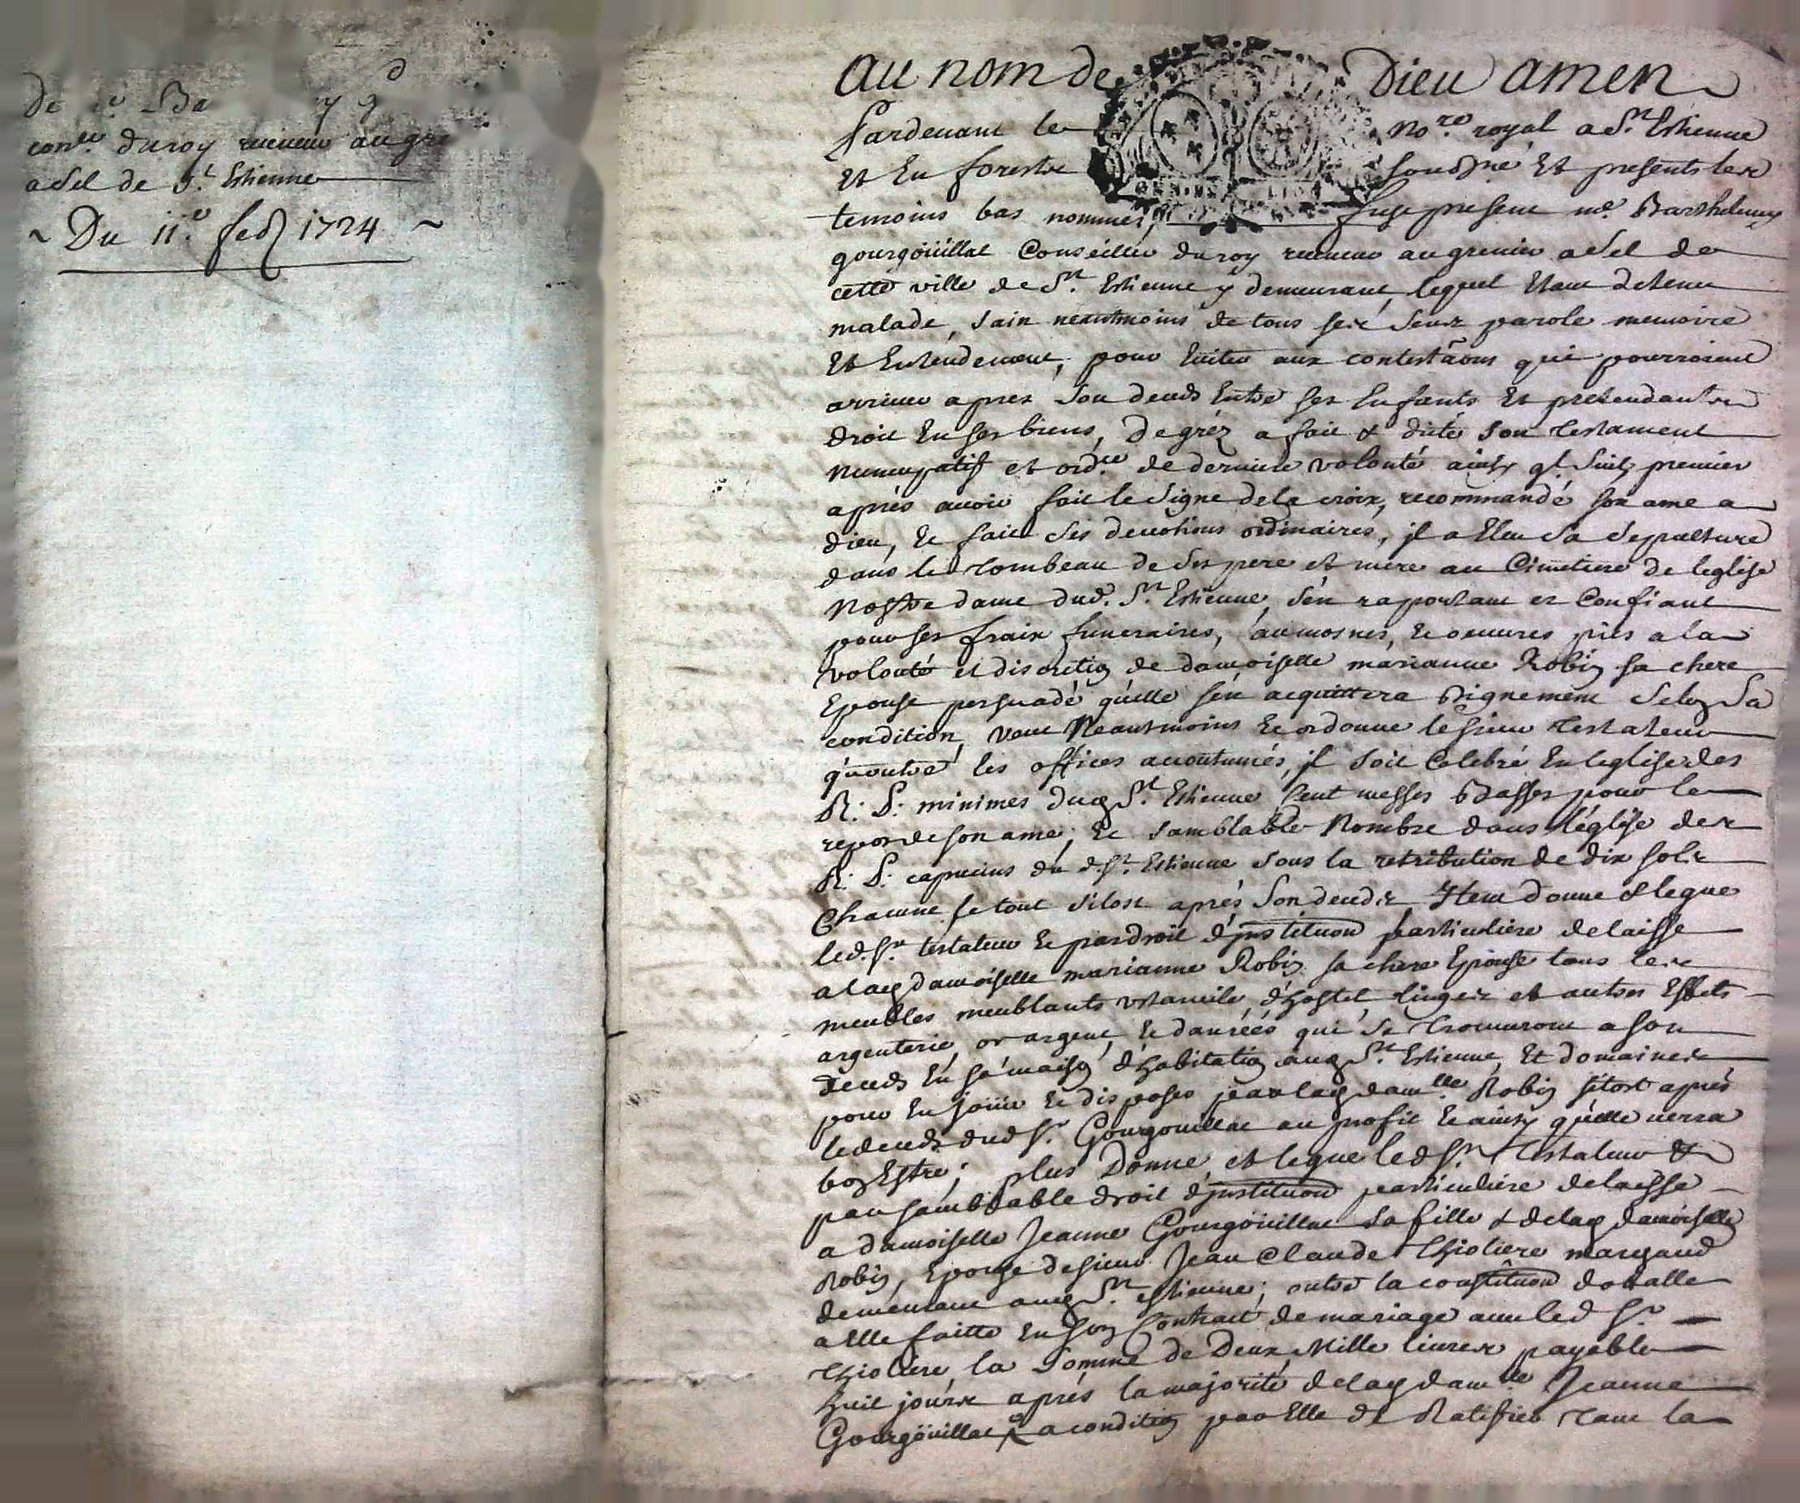 De Be y g
con.er du roy receveur au gre
a sel de S.t Estienne
~ Du 11.e feb 1724 ~
au nom de Dieu amen
Pardevant le No.re royal a S.nt Estienne
et en forestz sousigné et presents les
temoins bas nommes, fust present m.e Barthelemy
gourgöuillat Conseiller du roy receveur au grenier a sel de
cette ville de S.nt Estienne y demeurant, lequel etant detenu
malade, sain neantmoins de tous ses sens parole memoire
et entendement, pour eviter aux contestãons qui pourroient
arriver apres son deceds entre ses enfants et pretendants
droit en ses biens, de gréz a fait & dicté son testament
nuncupatif et ord.ce de derniere volonté ainsy q.l suit, premier
aprés avoir fait le signe de la croix, recommandé son ame a
dieu, et fait ses devotions ordinaires, il a eleu sa sepulture
dans le tombeau de ses pere et mere au Cimetiere de leglise
nostre dame dud. S.nt Estienne, s'en raportant et confiant
pour ses fraix funeraires, aumosnes, et oeuvres pies a la
volonté et discretion de damoiselle marianne Robin sa chere
Epouse persuadé qu'elle s'en acquittera dignement selon sa
condition, veut Neantmoins et ordonne le sieur testateur
qu'outre les offices accoutumés, il soit celebré en leglise des
R: P: minimes dud S.nt Estienne Cent messes Basses pour le
repos de son ame, et samblable Nombre dans l'église des
R: P: capucins du d. S.t Estienne sous la retribution de dix sols
Chacune le tout sitost aprés son deceds Item donne & legue
led. S.r testateur et par droit d'institution particuliere delaisse
a lad damoiselle marianne Robin sa chere Epouse tous les
meubles meublants ustancile, d'hostel, linges et autres effets
argenterie, or argent, et danréés qui se trouveront a son
deceds en sa maison d'habitation aud S.nt Estienne, et domaines
pour en joüir et disposer par lad dam.lle Robin sitost aprés
le deceds dud S.r Gourgouillat au profit et ainsy qu'elle verra
bon Estre; plus Donne et legue led S.r Testateur &
par samblable droit d'institution particuliere delaisse
a damoiselle Jeanne Gourgöuillat sa fille & de lad damoiselle
Robin, Epouse de sieur Jean Claude Thioliere marchand
demeurant aud S.nt estienne; outre la constitution dotalle
a elle faitte en son Contract de mariage avec led S.r
Thioliere, la somme de Deux Mille livres payable
huit jours aprés la majorité de lad dam.lle Jeanne
Gourgöuillat a condition par elle de Ratifier tant la